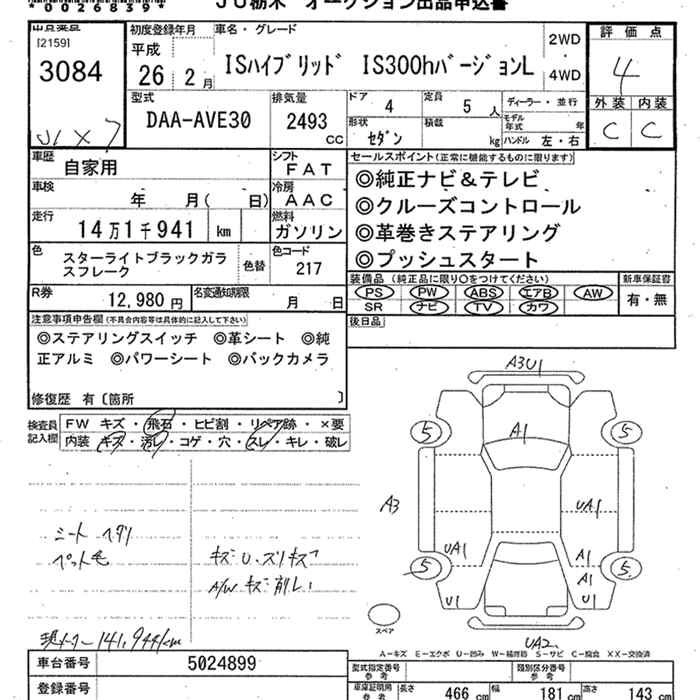 *026839*
JU栃木 オークション出品申込書
出品票品
[2159]
3084
初度登録年月
平成
26 2月
車名・グレード
ISハイブリッド IS300hバージョンL
2WD
4WD
評価点
4
外装 内装
C C
型式
DAA-AVE30
排気量
2493
CC
ドア
4
定員
5人
形状
セダン
積載
kg
ディーラー・並行
モデル年式
年
ハンドル 左・右
車歴
自家用
シフト
FAT
車検
年 月( 日)
冷房
AAC
走行
14万1千941 km
燃料
ガソリン
色
スターライトブラックガラ
スフレーク
色替
色コード
217
R券
12,980円
名変通知期限
月 日
セールスポイント(正常に機能するものに限ります)
◎純正ナビ&テレビ
◎クルーズコントロール
◎革巻きステアリング
◎プッシュスタート
装備品 (純正品に限り○をつけてください)
新車保証書
PS PW ABS エアB AW
SR ナビ TV カワ
有・無
後日品
注意事項申告欄(不具合内容等は具体的に記入して下さい)
◎ステアリングスイッチ ◎革シート ◎純
正アルミ ◎パワーシート ◎バックカメラ
修復歴 有〔箇所 〕
検査員
記入欄
FW キズ・飛石・ヒビ割・リペア跡・×要
内装 キズ・汚レ・コゲ・穴・スレ・キレ・破レ
シート ヘタリ
ペット毛
キズ U、ズリキズ
A/W キズ 削レ
現メーター 141,944km
A3U1
5
5
A1
A3
UA1
UA1
A1
A1
5
5
U1
U1
UA2
スペア
A-キズ E-エクボ U-凹み W-補修跡 S-サビ C-腐食 XX-交換済
車台番号
5024899
登録番号
型式指定番号
参考
類別区分番号
参考
車庫証明用
参考
長さ 466 cm
幅 181 cm
高さ 143 cm